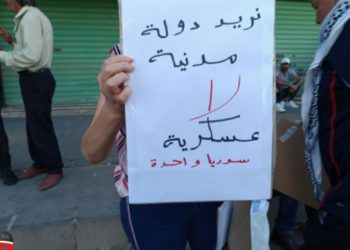 نريد دولة
مدنية
لا
عسكرية
سوريا واحدة